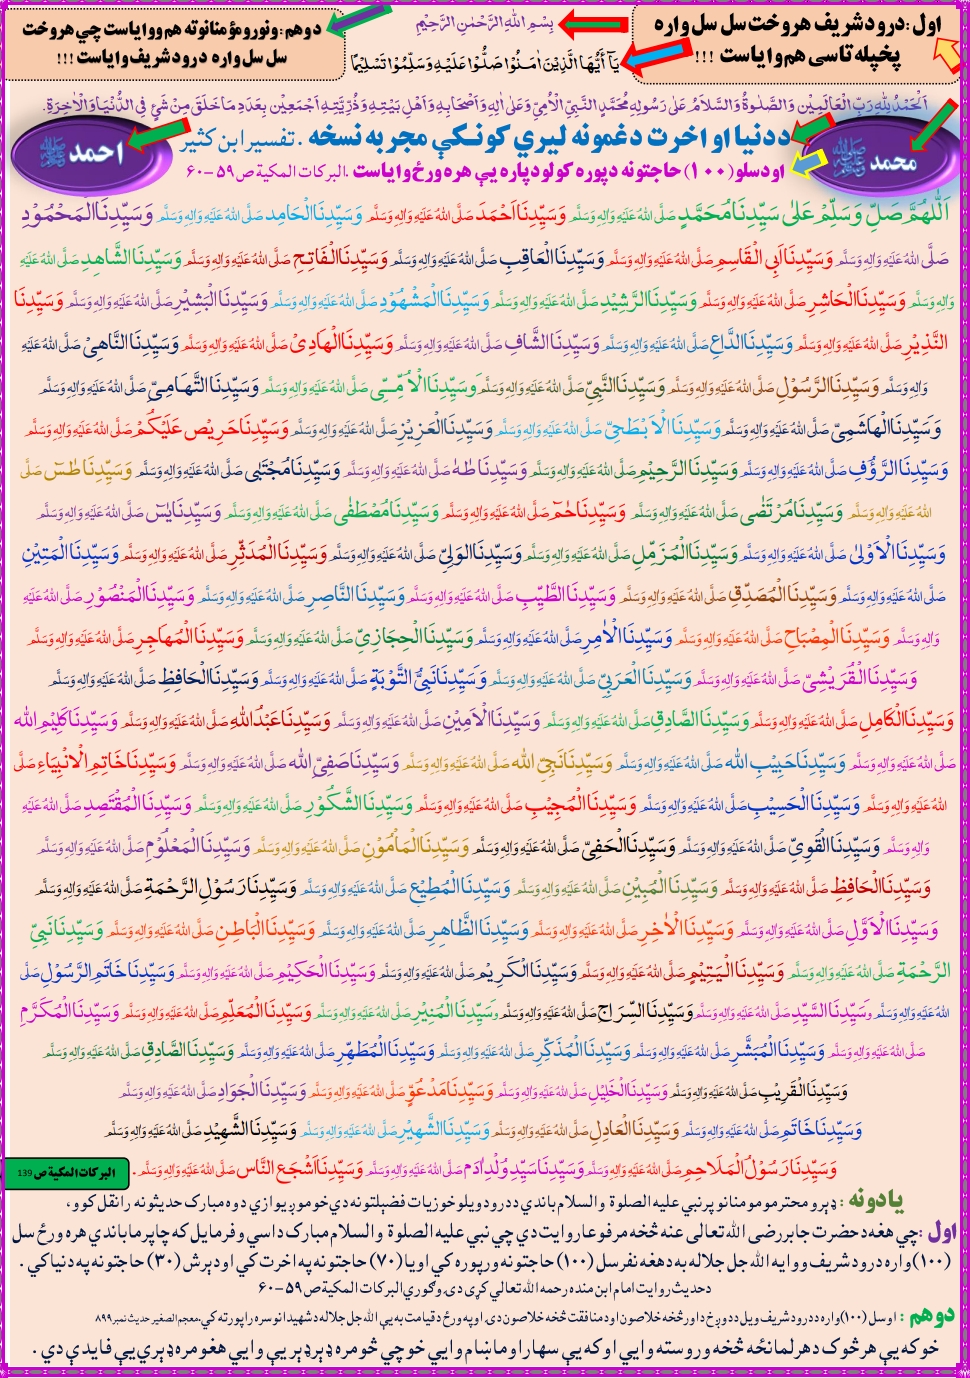 اول :درود شریف هروخت سل سل واره
پخپله تاسی هم وایاست !!!
بِسْمِ اللهِ الرَّحْمٰنِ الرَّحِيْمِ
يَآ اَيُّهَا الَّذِيْنَ اٰمَنُوْا صَلُّوْا عَلَيْهِ وَسَلِّمُوْا تَسْلِيْمًا
دوهم :ونورو مؤمنانو ته هم ووایاست چي هروخت
سل سل واره درود شریف وایاست !!!
اَلْحَمْدُ لِلّٰهِ رَبِّ الْعَالَمِيْنَ وَالصَّلٰوةُ وَالسَّلَامُ عَلٰى رَسُوْلِهٖ مُحَمَّدِ النَّبِيِّ الْاُمِّيِّ وَعَلٰى اٰلِهٖ وَاَصْحَابِهٖ وَاَهْلِ بَيْتِهٖ وَذُرِّيَّتِهٖ اَجْمَعِيْنَ بِعَدَدِ مَا خَلَقَ مِنْ شَيْئٍ فِي الدُّنْيَا وَالْاٰخِرَةِ.
محمد ﷺ
ددنیا او اخرت دغمونه لیري کونکې مجربه نسخه . تفسیر ابن کثیر
احمد ﷺ
اودسلو(۱۰۰) حاجتونه دپوره کولو دپاره یې هره ورځ وایاست .البرکات المکیة ص ۵۹-۶۰
اَللّٰهُمَّ صَلِّ وَسَلِّمْ عَلٰى سَيِّدِنَا مُحَمَّدٍ صَلَّى اللهُ عَلَيْهِ وَاٰلِهٖ وَسَلَّمَ وَسَيِّدِنَا اَحْمَدَ صَلَّى اللهُ عَلَيْهِ وَاٰلِهٖ وَسَلَّمَ وَسَيِّدِنَا الْحَامِدِ صَلَّى اللهُ عَلَيْهِ وَاٰلِهٖ وَسَلَّمَ وَسَيِّدِنَا الْمَحْمُوْدِ
صَلَّى اللهُ عَلَيْهِ وَاٰلِهٖ وَسَلَّمَ وَسَيِّدِنَا اَبِي الْقَاسِمِ صَلَّى اللهُ عَلَيْهِ وَاٰلِهٖ وَسَلَّمَ وَسَيِّدِنَا الْعَاقِبِ صَلَّى اللهُ عَلَيْهِ وَاٰلِهٖ وَسَلَّمَ وَسَيِّدِنَا الْفَاتِحِ صَلَّى اللهُ عَلَيْهِ وَاٰلِهٖ وَسَلَّمَ وَسَيِّدِنَا الشَّاهِدِ صَلَّى اللهُ عَلَيْهِ
وَاٰلِهٖ وَسَلَّمَ وَسَيِّدِنَا الْحَاشِرِ صَلَّى اللهُ عَلَيْهِ وَاٰلِهٖ وَسَلَّمَ وَسَيِّدِنَا الرَّشِيْدِ صَلَّى اللهُ عَلَيْهِ وَاٰلِهٖ وَسَلَّمَ وَسَيِّدِنَا الْمَشْهُوْدِ صَلَّى اللهُ عَلَيْهِ وَاٰلِهٖ وَسَلَّمَ وَسَيِّدِنَا الْبَشِيْرِ صَلَّى اللهُ عَلَيْهِ وَاٰلِهٖ وَسَلَّمَ وَسَيِّدِنَا
النَّذِيْرِ صَلَّى اللهُ عَلَيْهِ وَاٰلِهٖ وَسَلَّمَ وَسَيِّدِنَا الدَّاعِ صَلَّى اللهُ عَلَيْهِ وَاٰلِهٖ وَسَلَّمَ وَسَيِّدِنَا الشَّافِ صَلَّى اللهُ عَلَيْهِ وَاٰلِهٖ وَسَلَّمَ وَسَيِّدِنَا الْهَادِيْ صَلَّى اللهُ عَلَيْهِ وَاٰلِهٖ وَسَلَّمَ وَسَيِّدِنَا النَّاهِيْ صَلَّى اللهُ عَلَيْهِ
وَاٰلِهٖ وَسَلَّمَ وَسَيِّدِنَا الرَّسُوْلِ صَلَّى اللهُ عَلَيْهِ وَاٰلِهٖ وَسَلَّمَ وَسَيِّدِنَا النَّبِيِّ صَلَّى اللهُ عَلَيْهِ وَاٰلِهٖ وَسَلَّمَ وَسَيِّدِنَا الْاُمِّيِّ صَلَّى اللهُ عَلَيْهِ وَاٰلِهٖ وَسَلَّمَ وَسَيِّدِنَا التَّهَامِيِّ صَلَّى اللهُ عَلَيْهِ وَاٰلِهٖ وَسَلَّمَ
وَسَيِّدِنَا الْهَاشَمِيِّ صَلَّى اللهُ عَلَيْهِ وَاٰلِهٖ وَسَلَّمَ وَسَيِّدِنَا الْاَبْطَحِيِّ صَلَّى اللهُ عَلَيْهِ وَاٰلِهٖ وَسَلَّمَ وَسَيِّدِنَا الْعَزِيْزِ صَلَّى اللهُ عَلَيْهِ وَاٰلِهٖ وَسَلَّمَ وَسَيِّدِنَا حَرِيْصٍ عَلَيْكُمْ صَلَّى اللهُ عَلَيْهِ وَاٰلِهٖ وَسَلَّمَ
وَسَيِّدِنَا الرَّؤُفِ صَلَّى اللهُ عَلَيْهِ وَاٰلِهٖ وَسَلَّمَ وَسَيِّدِنَا الرَّحِيْمِ صَلَّى اللهُ عَلَيْهِ وَاٰلِهٖ وَسَلَّمَ وَسَيِّدِنَا طٰهٰ صَلَّى اللهُ عَلَيْهِ وَاٰلِهٖ وَسَلَّمَ وَسَيِّدِنَا مُجْتَبٰى صَلَّى اللهُ عَلَيْهِ وَاٰلِهٖ وَسَلَّمَ وَسَيِّدِنَا طٰسٓ صَلَّى
اللهُ عَلَيْهِ وَاٰلِهٖ وَسَلَّمَ وَسَيِّدِنَا مُرْتَضٰى صَلَّى اللهُ عَلَيْهِ وَاٰلِهٖ وَسَلَّمَ وَسَيِّدِنَا حٰمٓ صَلَّى اللهُ عَلَيْهِ وَاٰلِهٖ وَسَلَّمَ وَسَيِّدِنَا مُصْطَفٰى صَلَّى اللهُ عَلَيْهِ وَاٰلِهٖ وَسَلَّمَ وَسَيِّدِنَا يٰسٓ صَلَّى اللهُ عَلَيْهِ وَاٰلِهٖ وَسَلَّمَ
وَسَيِّدِنَا الْاَوْلٰى صَلَّى اللهُ عَلَيْهِ وَاٰلِهٖ وَسَلَّمَ وَسَيِّدِنَا الْمُزَمِّلِ صَلَّى اللهُ عَلَيْهِ وَاٰلِهٖ وَسَلَّمَ وَسَيِّدِنَا الْوَلِيِّ صَلَّى اللهُ عَلَيْهِ وَاٰلِهٖ وَسَلَّمَ وَسَيِّدِنَا الْمُدَثِّرِ صَلَّى اللهُ عَلَيْهِ وَاٰلِهٖ وَسَلَّمَ وَسَيِّدِنَا الْمَتِيْنِ
صَلَّى اللهُ عَلَيْهِ وَاٰلِهٖ وَسَلَّمَ وَسَيِّدِنَا الْمَصَدِّقِ صَلَّى اللهُ عَلَيْهِ وَاٰلِهٖ وَسَلَّمَ وَسَيِّدِنَا الطَّيِّبِ صَلَّى اللهُ عَلَيْهِ وَاٰلِهٖ وَسَلَّمَ وَسَيِّدِنَا النَّاصِرِ صَلَّى اللهُ عَلَيْهِ وَاٰلِهٖ وَسَلَّمَ وَسَيِّدِنَا الْمَنْصُوْرِ صَلَّى اللهُ عَلَيْهِ
وَاٰلِهٖ وَسَلَّمَ وَسَيِّدِنَا الْمِصْبَاحِ صَلَّى اللهُ عَلَيْهِ وَاٰلِهٖ وَسَلَّمَ وَسَيِّدِنَا الْاٰمِرِ صَلَّى اللهُ عَلَيْهِ وَاٰلِهٖ وَسَلَّمَ وَسَيِّدِنَا الْحِجَازِيِّ صَلَّى اللهُ عَلَيْهِ وَاٰلِهٖ وَسَلَّمَ وَسَيِّدِنَا الْمُهَاجِرِ صَلَّى اللهُ عَلَيْهِ وَاٰلِهٖ وَسَلَّمَ
وَسَيِّدِنَا الْقُرَيْشِيِّ صَلَّى اللهُ عَلَيْهِ وَاٰلِهٖ وَسَلَّمَ وَسَيِّدِنَا الْعَرَبِيِّ صَلَّى اللهُ عَلَيْهِ وَاٰلِهٖ وَسَلَّمَ وَسَيِّدِنَا نَبِيُّ التَّوْبَةِ صَلَّى اللهُ عَلَيْهِ وَاٰلِهٖ وَسَلَّمَ وَسَيِّدِنَا الْحَافِظِ صَلَّى اللهُ عَلَيْهِ وَاٰلِهٖ وَسَلَّمَ
وَسَيِّدِنَا الْكَامِلِ صَلَّى اللهُ عَلَيْهِ وَاٰلِهٖ وَسَلَّمَ وَسَيِّدِنَا الصَّادِقِ صَلَّى اللهُ عَلَيْهِ وَاٰلِهٖ وَسَلَّمَ وَسَيِّدِنَا الْاَمِيْنِ صَلَّى اللهُ عَلَيْهِ وَاٰلِهٖ وَسَلَّمَ وَسَيِّدِنَا عَبْدِاللهِ صَلَّى اللهُ عَلَيْهِ وَاٰلِهٖ وَسَلَّمَ وَسَيِّدِنَا كَلِيْمِ الله
صَلَّى اللهُ عَلَيْهِ وَاٰلِهٖ وَسَلَّمَ وَسَيِّدِنَا حَبِيْبِ الله صَلَّى اللهُ عَلَيْهِ وَاٰلِهٖ وَسَلَّمَ وَسَيِّدِنَا نَجِيِّ الله صَلَّى اللهُ عَلَيْهِ وَاٰلِهٖ وَسَلَّمَ وَسَيِّدِنَا صَفِيِّ الله صَلَّى اللهُ عَلَيْهِ وَاٰلِهٖ وَسَلَّمَ وَسَيِّدِنَا خَاتِمِ الْاَنْبِيَاءِ صَلَّى
اللهُ عَلَيْهِ وَاٰلِهٖ وَسَلَّمَ وَسَيِّدِنَا الْحَسِيْبِ صَلَّى اللهُ عَلَيْهِ وَاٰلِهٖ وَسَلَّمَ وَسَيِّدِنَا الْمُجِيْبِ صَلَّى اللهُ عَلَيْهِ وَاٰلِهٖ وَسَلَّمَ وَسَيِّدِنَا الشَّكُوْرِ صَلَّى اللهُ عَلَيْهِ وَاٰلِهٖ وَسَلَّمَ وَسَيِّدِنَا الْمُقْتَصِدِ صَلَّى اللهُ عَلَيْهِ
وَاٰلِهٖ وَسَلَّمَ وَسَيِّدِنَا الْقَوِيِّ صَلَّى اللهُ عَلَيْهِ وَاٰلِهٖ وَسَلَّمَ وَسَيِّدِنَا الْحَفِيِّ صَلَّى اللهُ عَلَيْهِ وَاٰلِهٖ وَسَلَّمَ وَسَيِّدِنَا الْمَأْمُوْنِ صَلَّى اللهُ عَلَيْهِ وَاٰلِهٖ وَسَلَّمَ وَسَيِّدِنَا الْمَعْلُوْمِ صَلَّى اللهُ عَلَيْهِ وَاٰلِهٖ وَسَلَّمَ
وَسَيِّدِنَا الْحَافِظِ صَلَّى اللهُ عَلَيْهِ وَاٰلِهٖ وَسَلَّمَ وَسَيِّدِنَا الْمُبِيْنِ صَلَّى اللهُ عَلَيْهِ وَاٰلِهٖ وَسَلَّمَ وَسَيِّدِنَا الْمُطِيْعِ صَلَّى اللهُ عَلَيْهِ وَاٰلِهٖ وَسَلَّمَ وَسَيِّدِنَا رَسُوْلِ الرَّحْمَةِ صَلَّى اللهُ عَلَيْهِ وَاٰلِهٖ وَسَلَّمَ
وَسَيِّدِنَا الْاَوَّلِ صَلَّى اللهُ عَلَيْهِ وَاٰلِهٖ وَسَلَّمَ وَسَيِّدِنَا الْاٰخِرِ صَلَّى اللهُ عَلَيْهِ وَاٰلِهٖ وَسَلَّمَ وَسَيِّدِنَا الظَّاهِرِ صَلَّى اللهُ عَلَيْهِ وَاٰلِهٖ وَسَلَّمَ وَسَيِّدِنَا الْبَاطِنِ صَلَّى اللهُ عَلَيْهِ وَاٰلِهٖ وَسَلَّمَ وَسَيِّدِنَا نَبِيِّ
الرَّحْمَةِ صَلَّى اللهُ عَلَيْهِ وَاٰلِهٖ وَسَلَّمَ وَسَيِّدِنَا الْيَتِيْمِ صَلَّى اللهُ عَلَيْهِ وَاٰلِهٖ وَسَلَّمَ وَسَيِّدِنَا الْكَرِيْمِ صَلَّى اللهُ عَلَيْهِ وَاٰلِهٖ وَسَلَّمَ وَسَيِّدِنَا الْحَكِيْمِ صَلَّى اللهُ عَلَيْهِ وَاٰلِهٖ وَسَلَّمَ وَسَيِّدِنَا خَاتَمِ الرَّسُوْلِ صَلَّى
اللهُ عَلَيْهِ وَاٰلِهٖ وَسَلَّمَ وَسَيِّدِنَا السَّيِّدِ صَلَّى اللهُ عَلَيْهِ وَاٰلِهٖ وَسَلَّمَ وَسَيِّدِنَا السِّرَاجِ صَلَّى اللهُ عَلَيْهِ وَاٰلِهٖ وَسَلَّمَ وَسَيِّدِنَا الْمُنِيْرِ صَلَّى اللهُ عَلَيْهِ وَاٰلِهٖ وَسَلَّمَ وَسَيِّدِنَا الْمُعَلِّمِ صَلَّى اللهُ عَلَيْهِ وَاٰلِهٖ وَسَلَّمَ وَسَيِّدِنَا الْمُكَرَّمِ
صَلَّى اللهُ عَلَيْهِ وَاٰلِهٖ وَسَلَّمَ وَسَيِّدِنَا الْمُبَشَّرِ صَلَّى اللهُ عَلَيْهِ وَاٰلِهٖ وَسَلَّمَ وَسَيِّدِنَا الْمُذَكِّرِ صَلَّى اللهُ عَلَيْهِ وَاٰلِهٖ وَسَلَّمَ وَسَيِّدِنَا الْمُطَهِّرِ صَلَّى اللهُ عَلَيْهِ وَاٰلِهٖ وَسَلَّمَ وَسَيِّدِنَا الصَّادِقِ صَلَّى اللهُ عَلَيْهِ وَاٰلِهٖ وَسَلَّمَ
وَسَيِّدِنَا الْقَرِيْبِ صَلَّى اللهُ عَلَيْهِ وَاٰلِهٖ وَسَلَّمَ وَسَيِّدِنَا الْخَلِيْلِ صَلَّى اللهُ عَلَيْهِ وَاٰلِهٖ وَسَلَّمَ وَسَيِّدِنَا مَدْعُوٍّ صَلَّى اللهُ عَلَيْهِ وَاٰلِهٖ وَسَلَّمَ وَسَيِّدِنَا الْجَوَادِ صَلَّى اللهُ عَلَيْهِ وَاٰلِهٖ وَسَلَّمَ
وَسَيِّدِنَا خَاتَمِ صَلَّى اللهُ عَلَيْهِ وَاٰلِهٖ وَسَلَّمَ وَسَيِّدِنَا الْعَادِلِ صَلَّى اللهُ عَلَيْهِ وَاٰلِهٖ وَسَلَّمَ وَسَيِّدِنَا الشَّهِيْرِ صَلَّى اللهُ عَلَيْهِ وَاٰلِهٖ وَسَلَّمَ وَسَيِّدِنَا الشَّهِيْدِ صَلَّى اللهُ عَلَيْهِ وَاٰلِهٖ وَسَلَّمَ
وَسَيِّدِنَا رَسُوْلُ الْمَلَاحِمِ صَلَّى اللهُ عَلَيْهِ وَاٰلِهٖ وَسَلَّمَ وَسَيِّدِنَا سَيِّدِ وُلْدِ اٰدَمَ صَلَّى اللهُ عَلَيْهِ وَاٰلِهٖ وَسَلَّمَ وَسَيِّدِنَا اَشْجَعِ النَّاسِ صَلَّى اللهُ عَلَيْهِ وَاٰلِهٖ وَسَلَّمَ .
البرکات المکیة ص 139
یادونه : ډېرو محترمو مومنانو پر نبي علیه الصلوة والسلام باندي ددرود ویلو خو زیات فضیلتونه دي خو موږ یوازي دوه مبارک حدیثونه رانقل کوو،
اول :چي هغه دحضرت جابر رضی الله تعالی عنه څخه مرفوعا روایت دي چي نبي علیه الصلوة والسلام مبارک داسي وفرمایل که چا پر ما باندي هره ورځ سل
(۱۰۰) واره درود شریف ووایه الله جل جلاله به دهغه نفر سل (۱۰۰) حاجتونه ور پوره کي اویا (۷۰) حاجتونه په اخرت کي او دېرش (۳۰) حاجتونه په دنیا کي .
دحدیث روایت امام ابن منده رحمه الله تعالي کړی دی, وګوري البرکات المکیة ص ۵۹-۶۰
دوهم : او سل (۱۰۰) واره ددرود شریف ویل ددوږخ داور څخه خلاصون او دمنافقت څخه خلاصون دی. او په ورځ دقیامت به یې الله جل جلاله دشهیدانو سره راپورته کي. معجم الصغیر حدیث نمبر ۸۹۹
خو که یې هر څوک دهر لمانځه څخه وروسته وایي او که یې سهار او ماښام وایي خو چي څومره ډېر ډېر یې وایي هغومره ډېري یې فایدې دي .